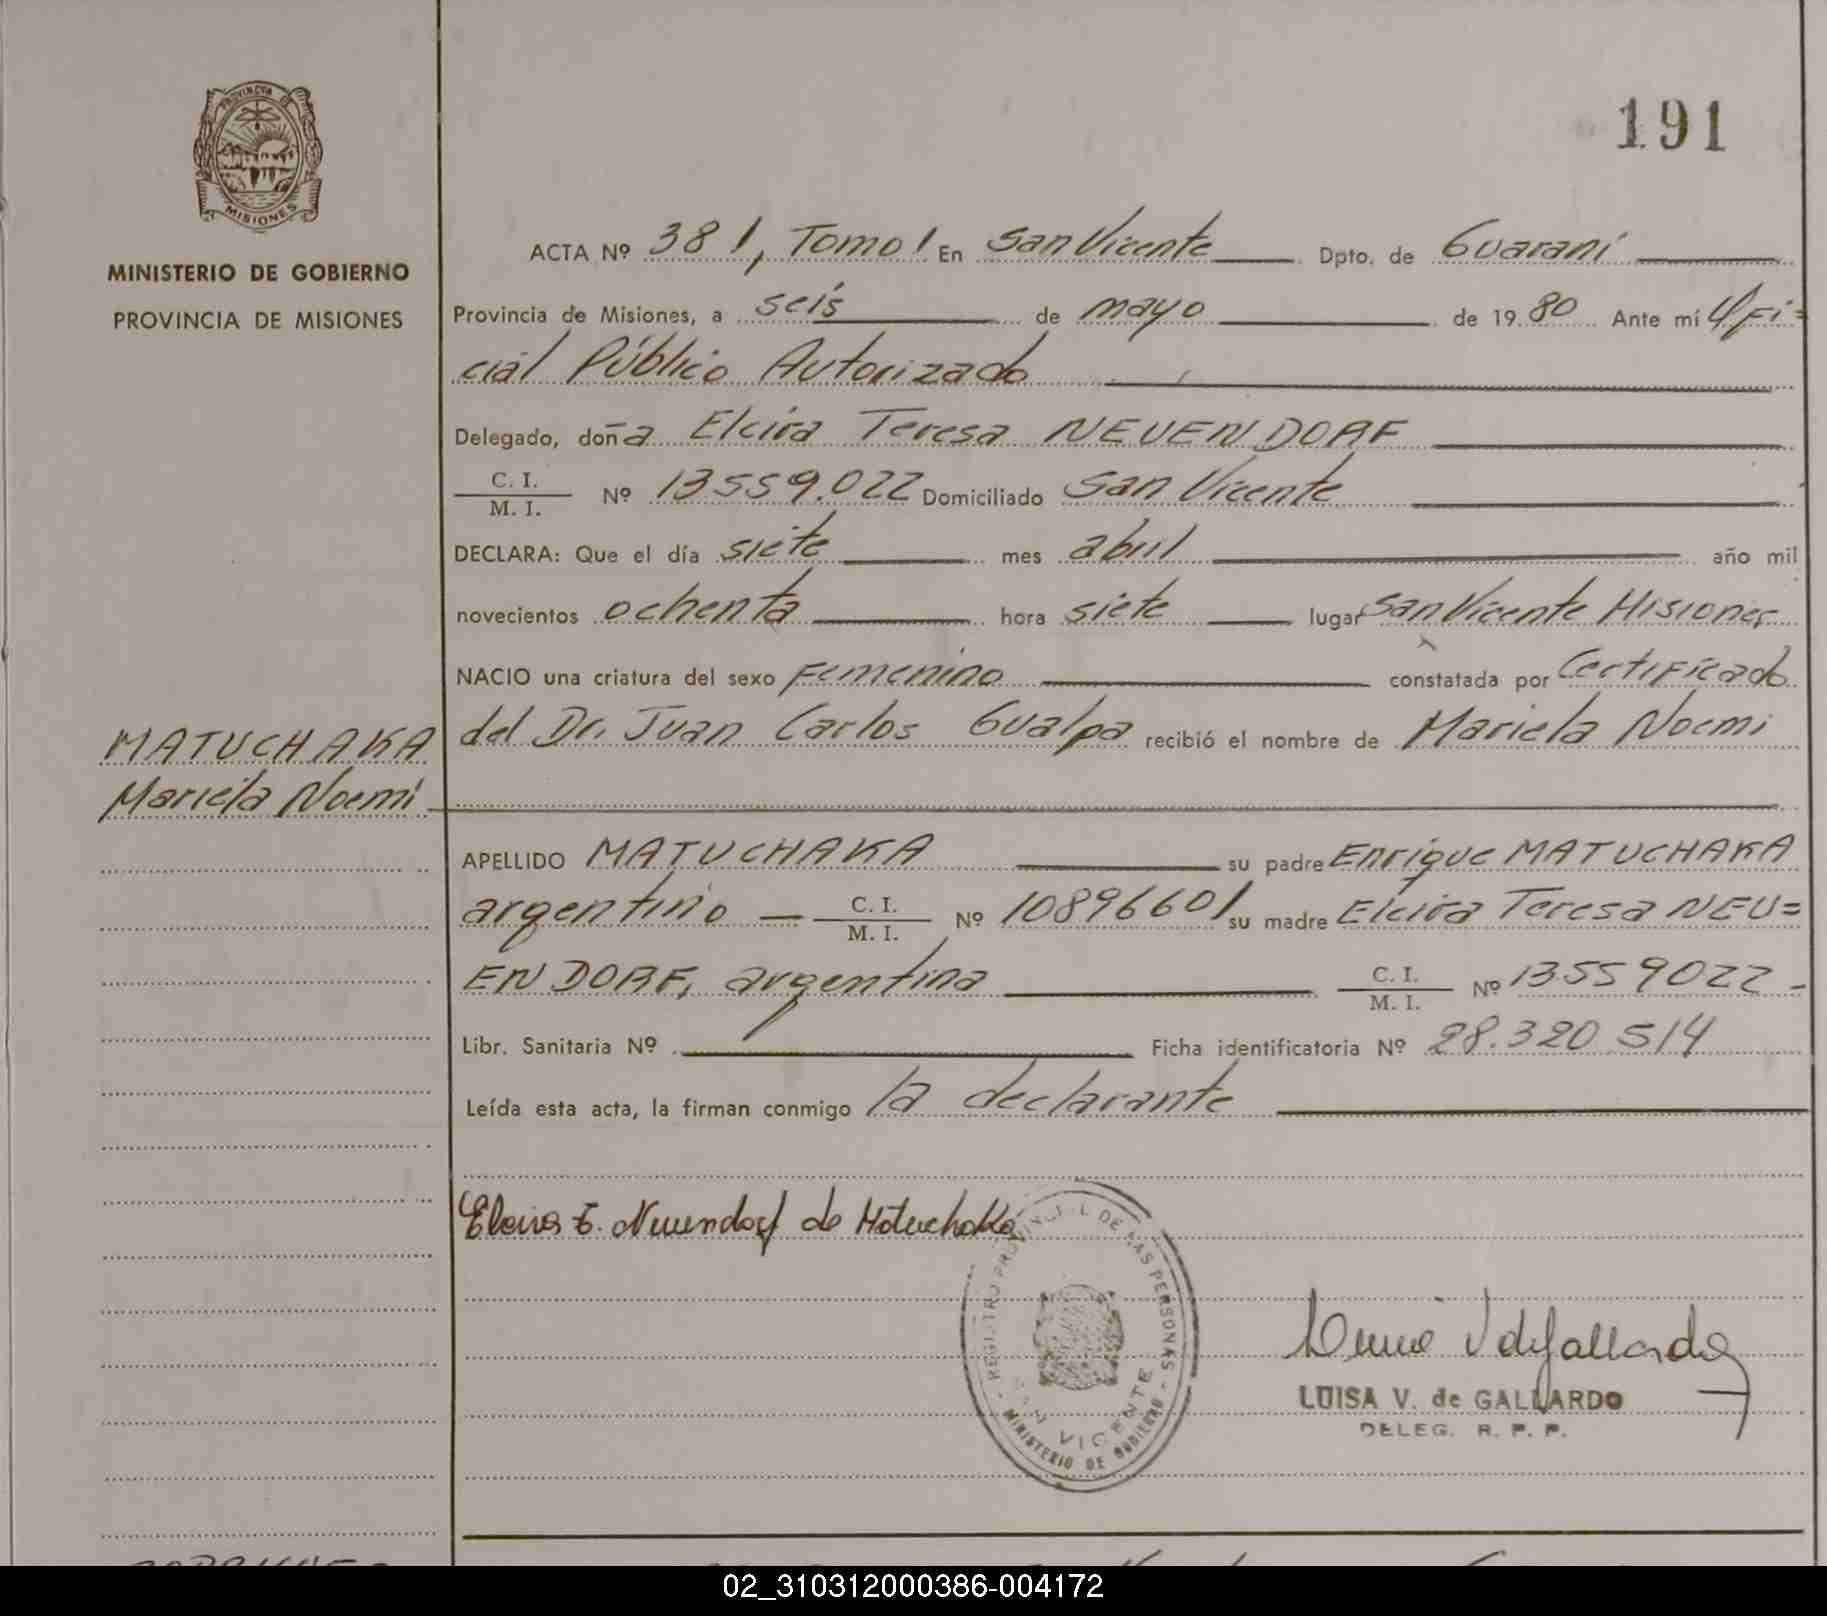 PROVINCIA DE
MISIONES
191
MINISTERIO DE GOBIERNO
PROVINCIA DE MISIONES
ACTA Nº 381, Tomo 1 En San Vicente Dpto. de Guaraní
Provincia de Misiones, a seis de mayo de 1980 Ante mí Ofi=
cial Público Autorizado
Delegado, doña Elcira Teresa NEUENDORF
C. I.
M. I. Nº 13559.022 Domiciliado San Vicente
DECLARA: Que el día siete mes abril año mil
novecientos ochenta hora siete lugar San Vicente Misiones
NACIO una criatura del sexo Femenino constatada por Certificado
del Dr. Juan Carlos Gualpa recibió el nombre de Mariela Noemi
MATUCHAKA
Mariela Noemi
APELLIDO MATUCHAKA su padre Enrique MATUCHAKA
argentino C. I.
M. I. Nº 10896601 su madre Elcira Teresa NEU=
ENDORF, argentina C. I.
M. I. Nº 13559022 -
Libr. Sanitaria Nº Ficha identificatoria Nº 28.320.514
Leída esta acta, la firman conmigo la declarante
Elcira T. Neuendorf de Matuchaka
REGISTRO PROVINCIAL DE LAS PERSONAS
SAN VICENTE
MINISTERIO DE GOBIERNO
LUISA V. de GALLARDO
DELEG. R. P. P.
02_310312000386-004172